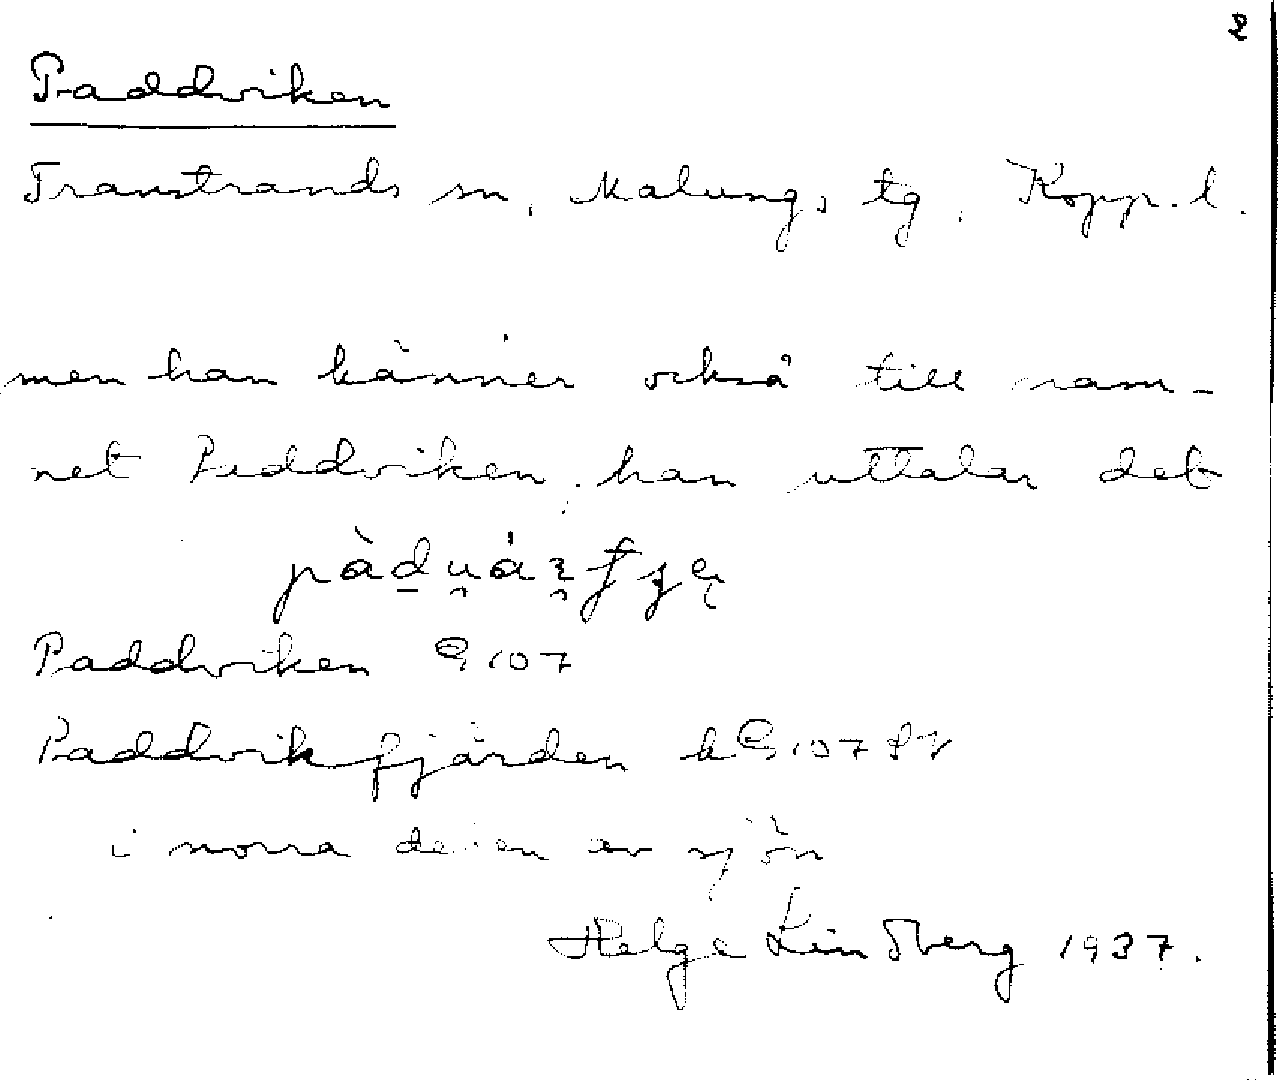 2
Paddviken
Transtrands sn, Malungs tg, Kopp. l.
men han känner också till nam-
net Paddviken, han uttalar det
Paddviken 107
Paddvikfjärden 107
i norra delen av sjön
Helge Lindberg 1937.